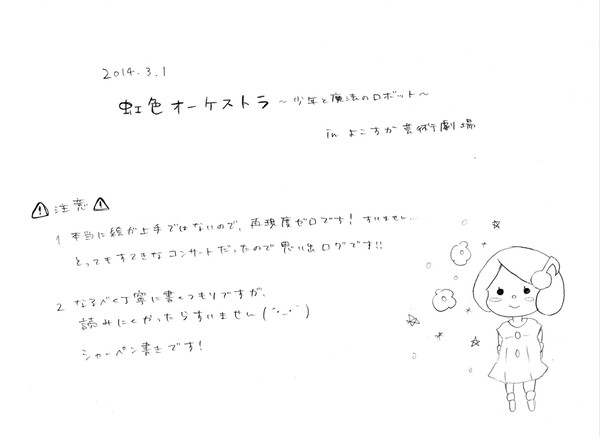 2014.3.1
虹色オーケストラ ～少年と魔法のロボット～
in よこすか芸術劇場
⚠ 注意 ⚠
1 本当に絵が上手ではないので、再現度ゼロです! すいません…
とってもすてきなコンサートだったので思い出ログです!!
2 なるべく丁寧に書くつもりですが、
読みにくかったらすいません(´･_･`)
シャーペン書きです!